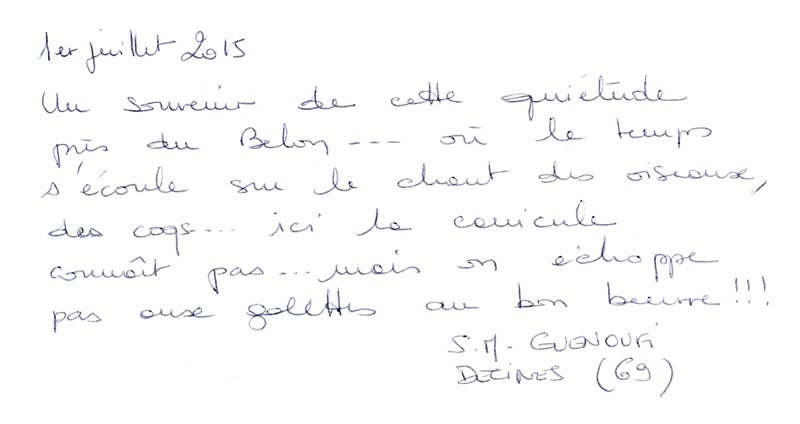 1er juillet 2015
Un souvenir de cette quiétude
près du Belon --- où le temps
s'écoule sur le chant des oiseaux,
des coqs... ici la canicule
connaît pas... mais on échappe
pas aux galettes au bon beurre!!!
S.M-
DECINES (69)